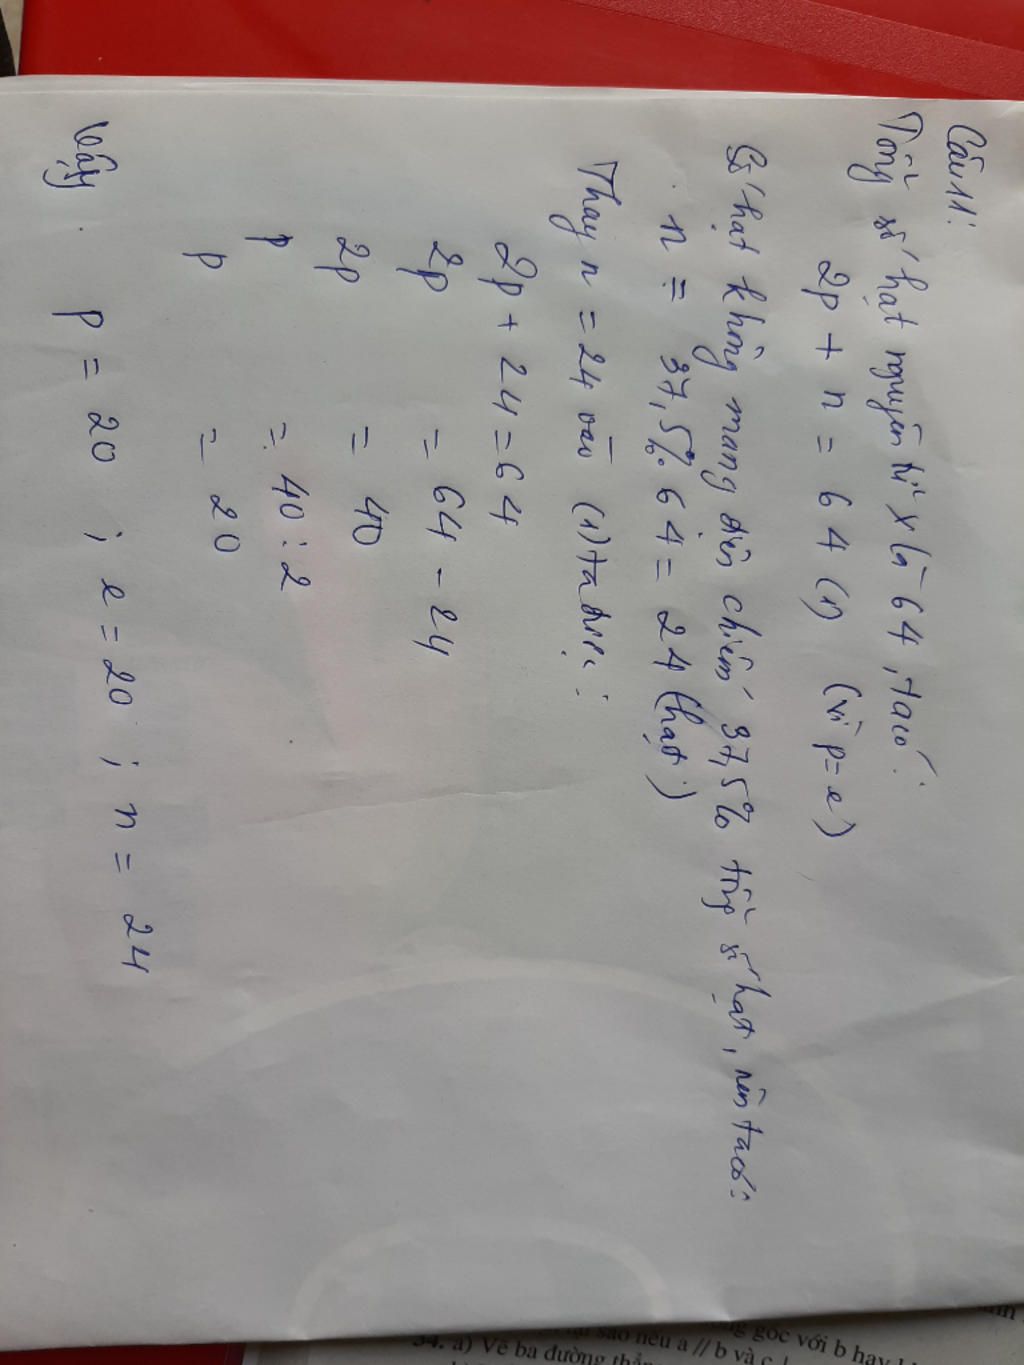 Câu 11:
Tổng số hạt nguyên tử x là 64, ta có:
2p + n = 64 (1) (vì p = e)
Số hạt không mang điện chiếm 37,5% tổng số hạt, nên ta có:
n = 37,5%.64 = 24 (hạt)
Thay n = 24 vào (1) ta được:
2p + 24 = 64
2p = 64 - 24
2p = 40
p = 40 : 2
p = 20
Vậy p = 20 ; e = 20 ; n = 24
góc với b hay
sao nếu a // b và c
34. a) Vẽ ba đường thẳng